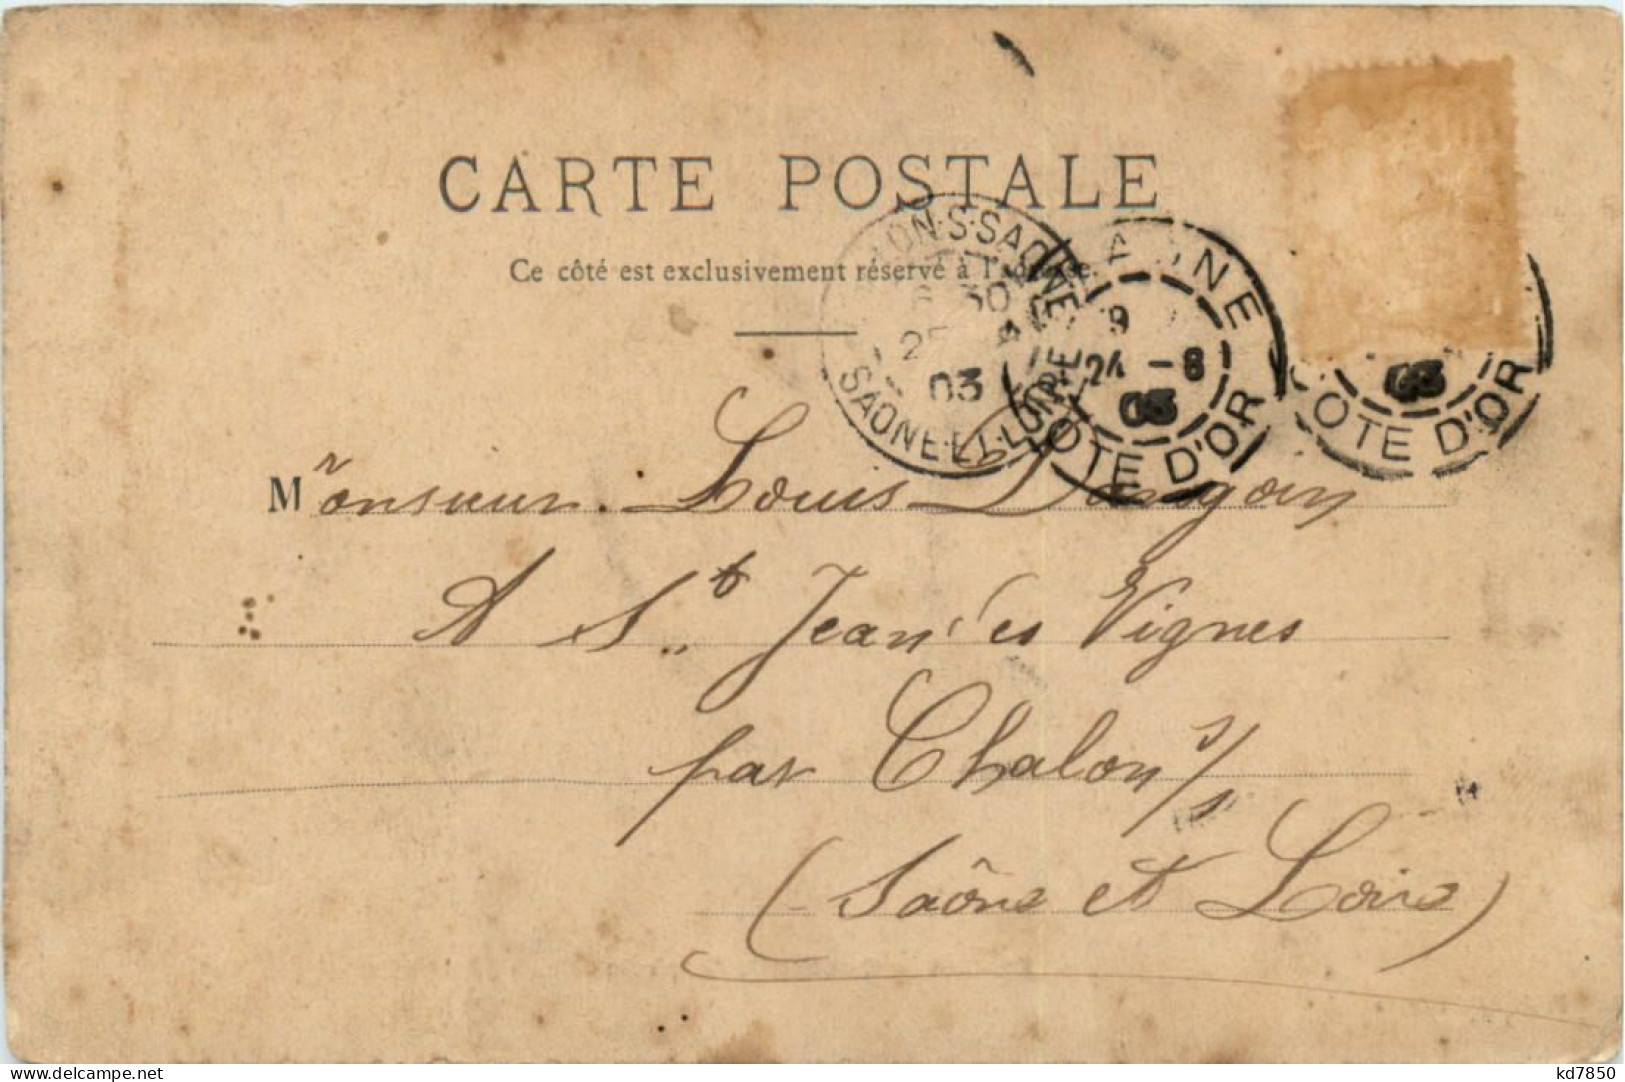 CARTE POSTALE
Ce côté est exclusivement réservé à l'adresse.
ON·S·SAONE
30
25
03
SAONE-ET-LOIRE
NE
9
24 -8
03
COTE D'OR
03
COTE D'OR
Monsieur Louis
A St. Jean des Vignes
par Chalon s/s
(Saône et Loire)
kd7850